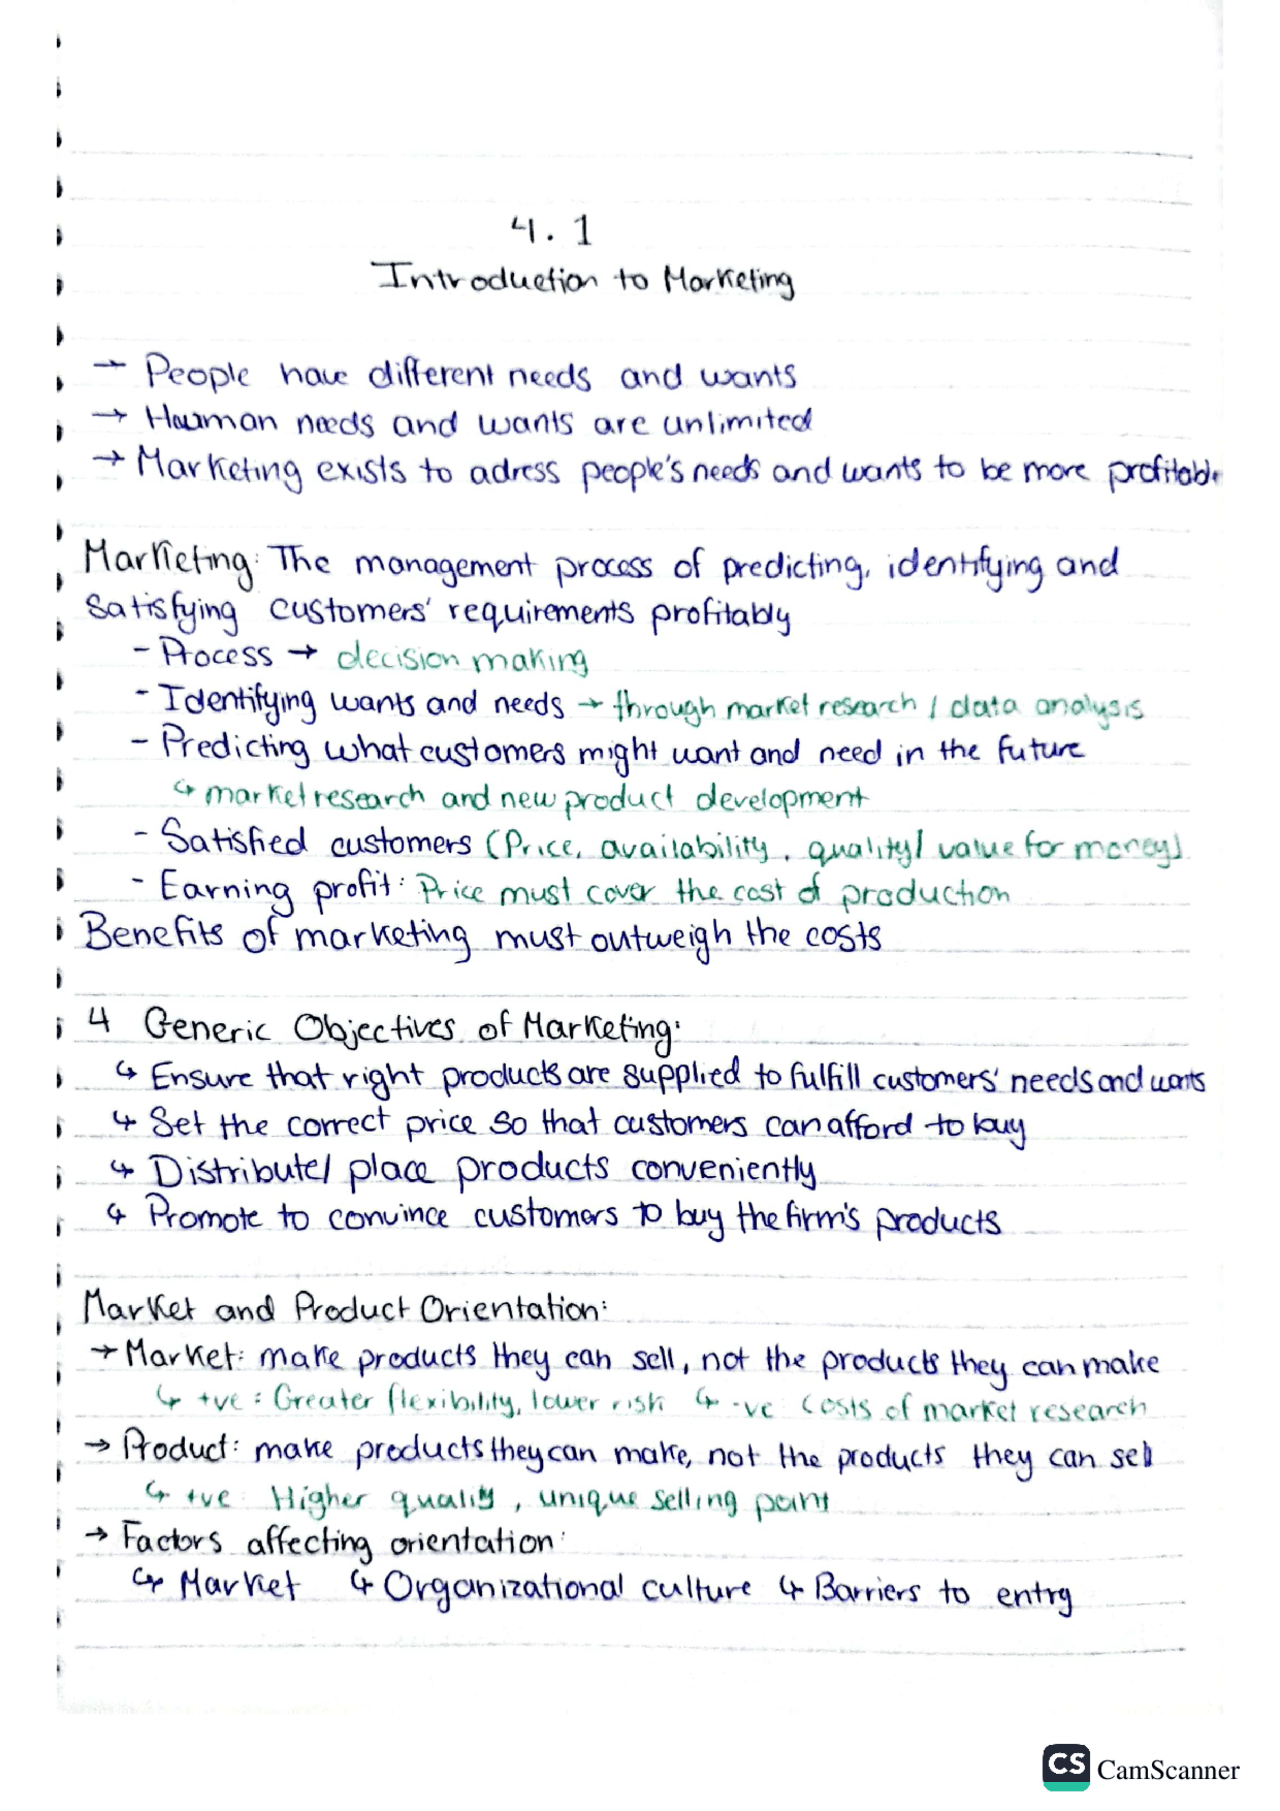 4.1
Introduction to Marketing
→ People have different needs and wants
→ Human needs and wants are unlimited
→ Marketing exists to adress people's needs and wants to be more profitable
Marketing: The management process of predicting, identifying and
satisfying customers' requirements profitably
- Process → decision making
- Identifying wants and needs → through market research / data analysis
- Predicting what customers might want and need in the future
↳ market research and new product development
- Satisfied customers (Price, availability, quality/ value for money)
- Earning profit: Price must cover the cost of production
Benefits of marketing must outweigh the costs
4 Generic Objectives of Marketing:
↳ Ensure that right products are supplied to fulfill customers' needs and wants
↳ Set the correct price so that customers can afford to buy
↳ Distribute/ place products conveniently
↳ Promote to convince customers to buy the firm's products
Market and Product Orientation:
→ Market: make products they can sell, not the products they can make
↳ +ve: Greater flexibility, lower risk ↳ -ve costs of market research
→ Product: make products they can make, not the products they can sell
↳ +ve Higher quality, unique selling point
→ Factors affecting orientation:
↳ Market ↳ Organizational culture ↳ Barriers to entry
CS CamScanner